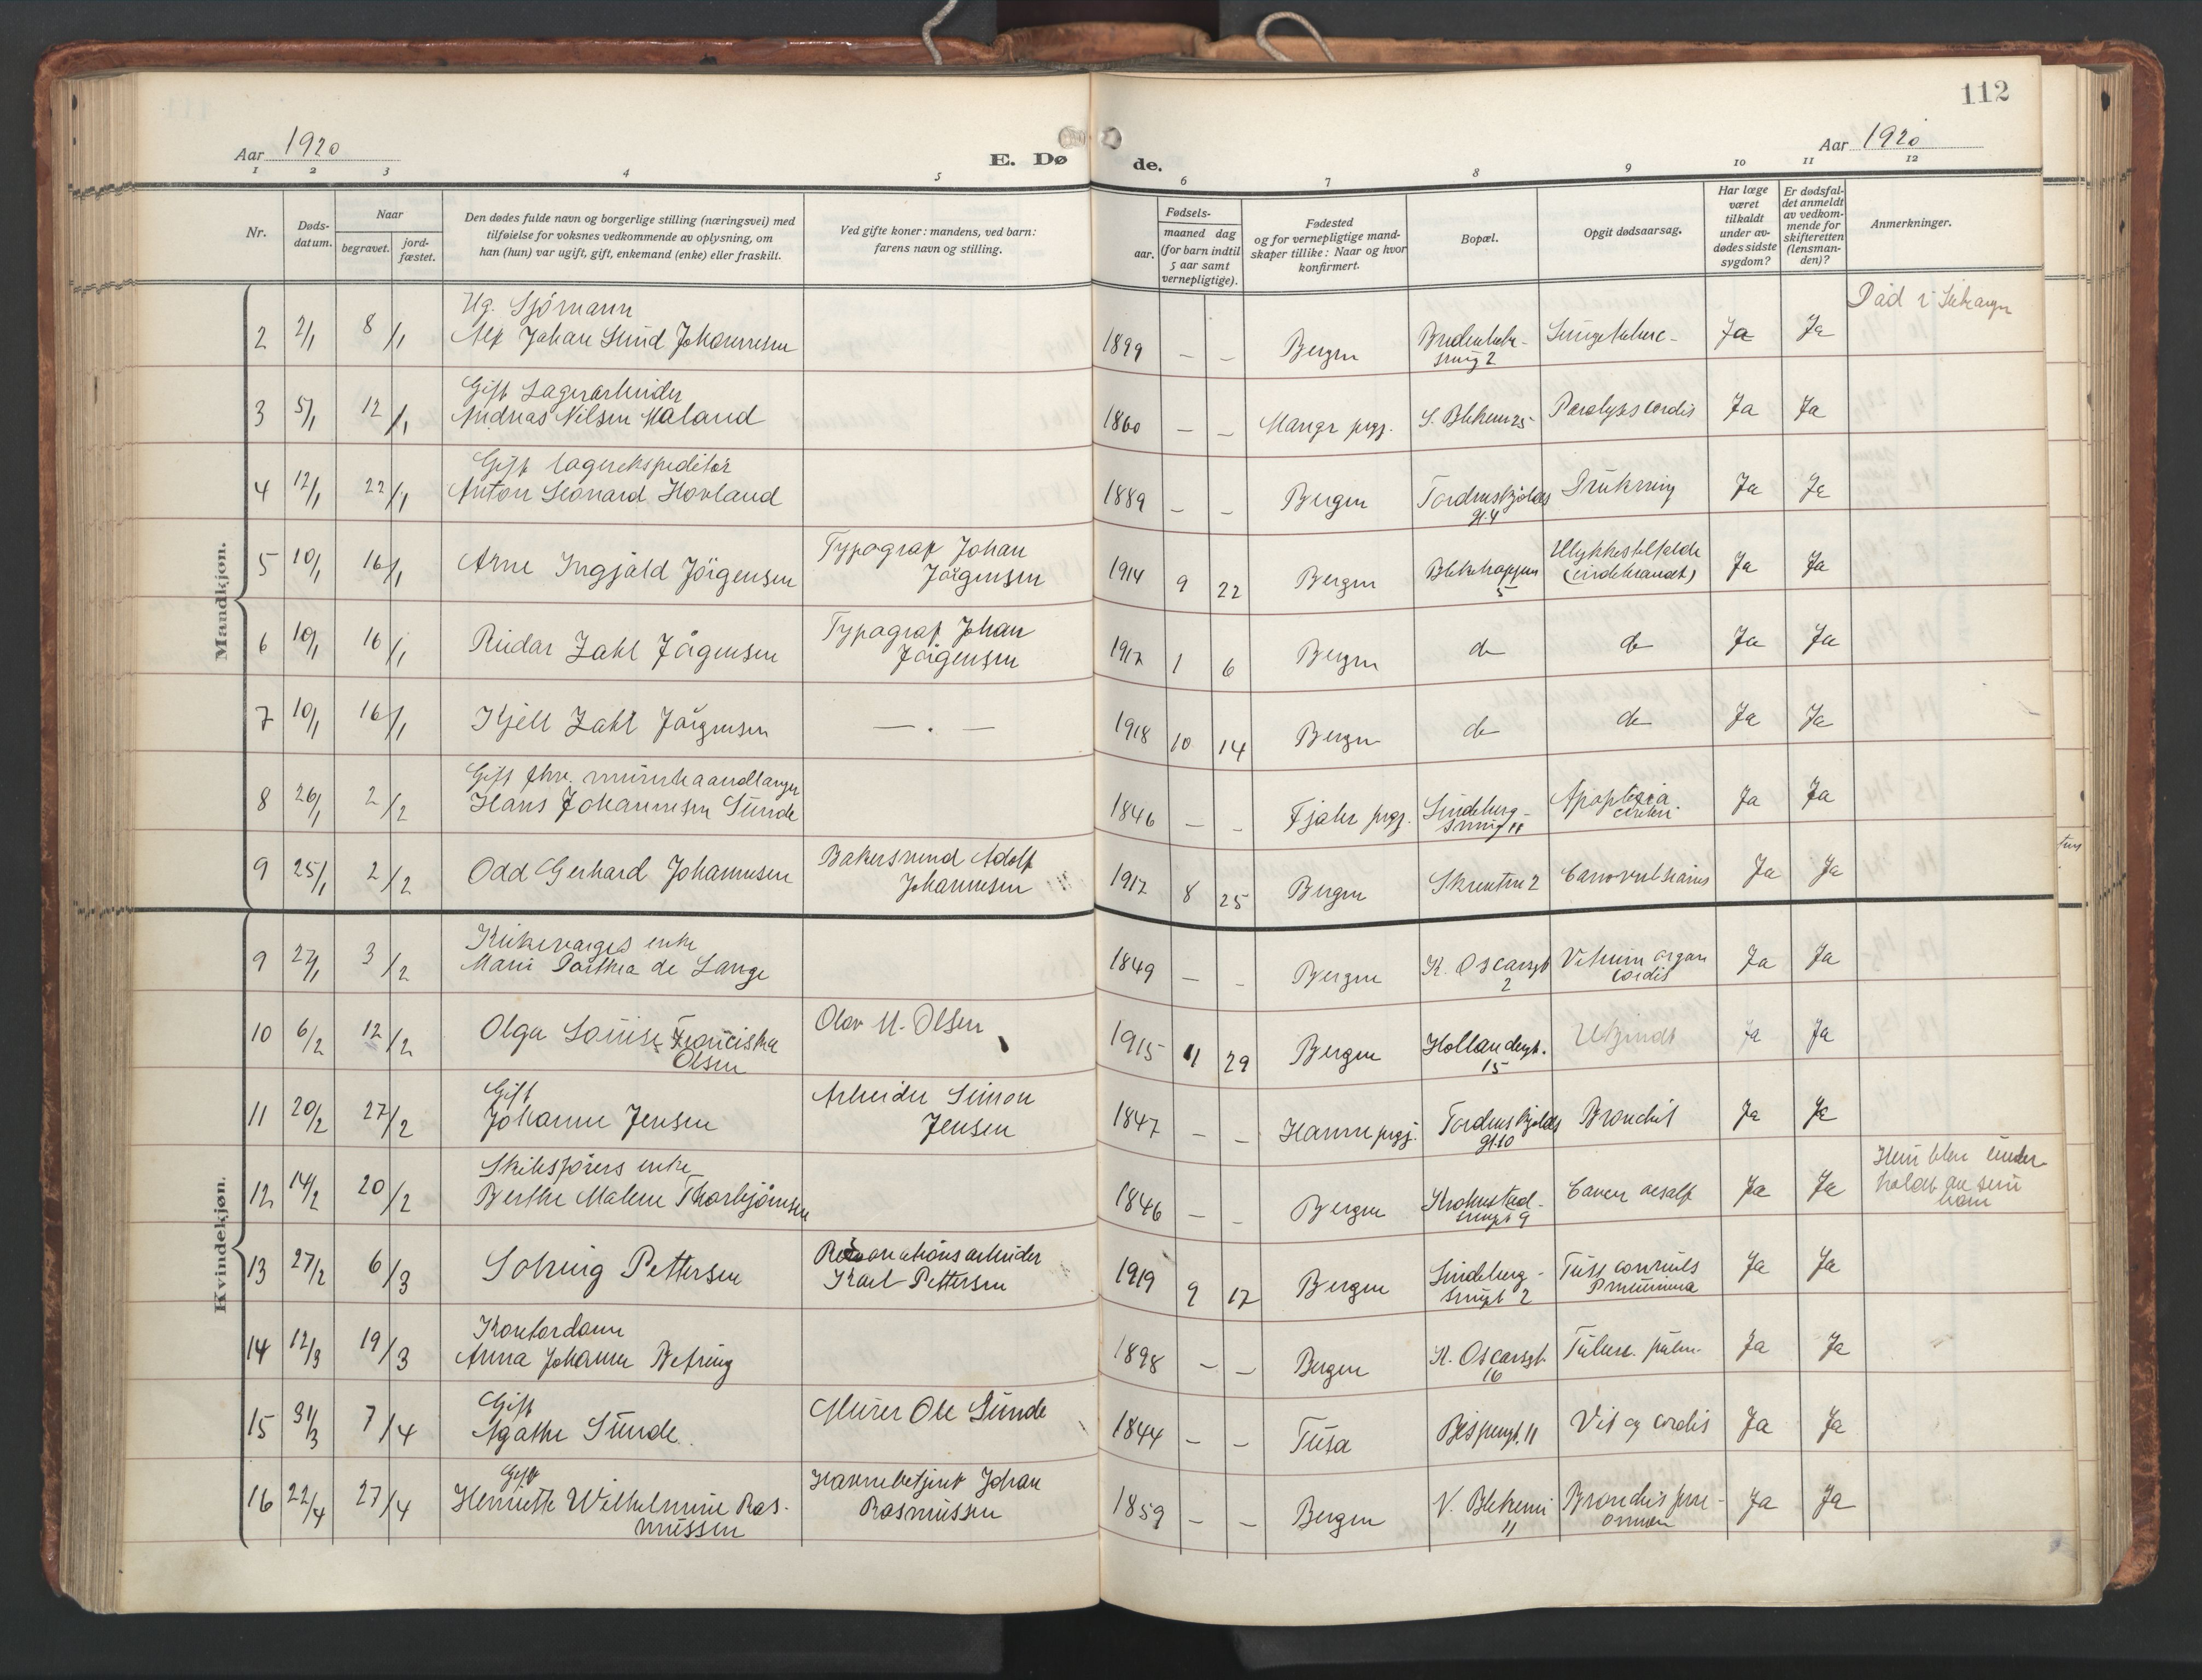 112
Aar 1920
E. Dø
de.
Aar 1920
1 2 3 4 5 6 7 8 9 10 11 12
Nr.
Døds-
datum.
Naar
begravet.
jord-
fæstet.
Den dødes fulde navn og borgerlige stilling (næringsvei) med
tilføielse for voksnes vedkommende av oplysning, om
han (hun) var ugift, gift, enkemand (enke) eller fraskilt.
Ved gifte koner: mandens, ved barn:
farens navn og stilling.
Fødsels-
aar.
maaned dag
(for barn indtil
5 aar samt
vernepligtige).
Fødested
og for vernepligtige mand-
skaper tillike: Naar og hvor
konfirmert.
Bopæl.
Opgit dødsaarsag.
Har læge
været
tilkaldt
under av-
dødes sidste
sygdom?
Er dødsfal-
det anmeldt
av vedkom-
mende for
skifteretten
(lensman-
den)?
Anmerkninger.
Mandkjøn.
Ug. Sjömann
2 2/1 8/1 Alf Johan Lund Johannesen 1899 – – Bergen
2 Ja Ja
Gift Lagerarbeider
3 5/1 12/1 Andreas Nilsen Maland 1860 – – Manger prgj. S. Blekevei 25 Paralysis cordis Ja Ja
Gift lagerekspeditör
4 12/1 22/1 Anton Leonard Hovland 1889 – – Bergen Tordenskjolds
gt. 4 Drukning Ja Ja
5 10/1 16/1 Arne Ingjald Jörgensen Typograf Johan
Jörgensen 1914 9 22 Bergen
5 Ulykkestilfælde
(indebrændt) Ja Ja
6 10/1 16/1 Reidar Zahl Jörgensen Typograf Johan
Jörgensen 1917 1 6 Bergen do do Ja Ja
7 10/1 16/1 Kjell Zahl Jörgensen — . — 1918 10 14 Bergen do do Ja Ja
Gift fhv. murerhaandlanger
8 26/1 2/2 Hans Johannesen Sunde 1846 – – Fjaler prgj. Lindeberg-
smug 11 Apoplexia
cerebri Ja Ja
9 25/1 2/2 Odd Gerhard Johannesen Bakersvend Adolf
Johannesen 1917 8 25 Bergen Skrenten 2 Ja Ja
Kvindekjøn.
enke
9 27/1 3/2 de Lange 1849 – – Bergen K. Oscarsgt
2 Vitium organ
cordis Ja Ja
10 6/2 12/2 Olga Louise Franciska
Olsen Olav M. Olsen 1915 11 29 Bergen Hollendergt.
15 Ja Ja
Gift
11 20/2 27/2 Johanne Jensen Arbeider Simon
Jensen 1847 – – Hamre prgj. Tordenskjolds
gt. 10 Bronchit Ja Ja
Skibsförers enke
12 14/2 20/2 Berthe Malene Thorbjörnsen 1846 – – Bergen Krohnsted-
smugt 9 Cancer oesoph Ja Ja Hun blev under-
holdt av sin
13 27/2 6/3 Solveig Pettersen
Karl Pettersen 1919 9 17 Bergen Lindeberg-
smugt 2 Tuss convuls
Pneumonia Ja Ja
Kontordame
14 12/3 19/3 Anna Johanne 1898 – – Bergen K. Oscarsgt.
16 Tuberc. pulm. Ja Ja
Gift
15 31/3 7/4 Agathe Sunde. Murer Ole Sunde 1844 – – Tusa Bispengt. 11 Vit og cordis Ja Ja
Gift
16 22/4 27/4 Henriette Wilhelmine Ras-
mussen Havnebetjent Johan
Rasmussen 1859 – – Bergen V. Blekevei
11 Ja Ja